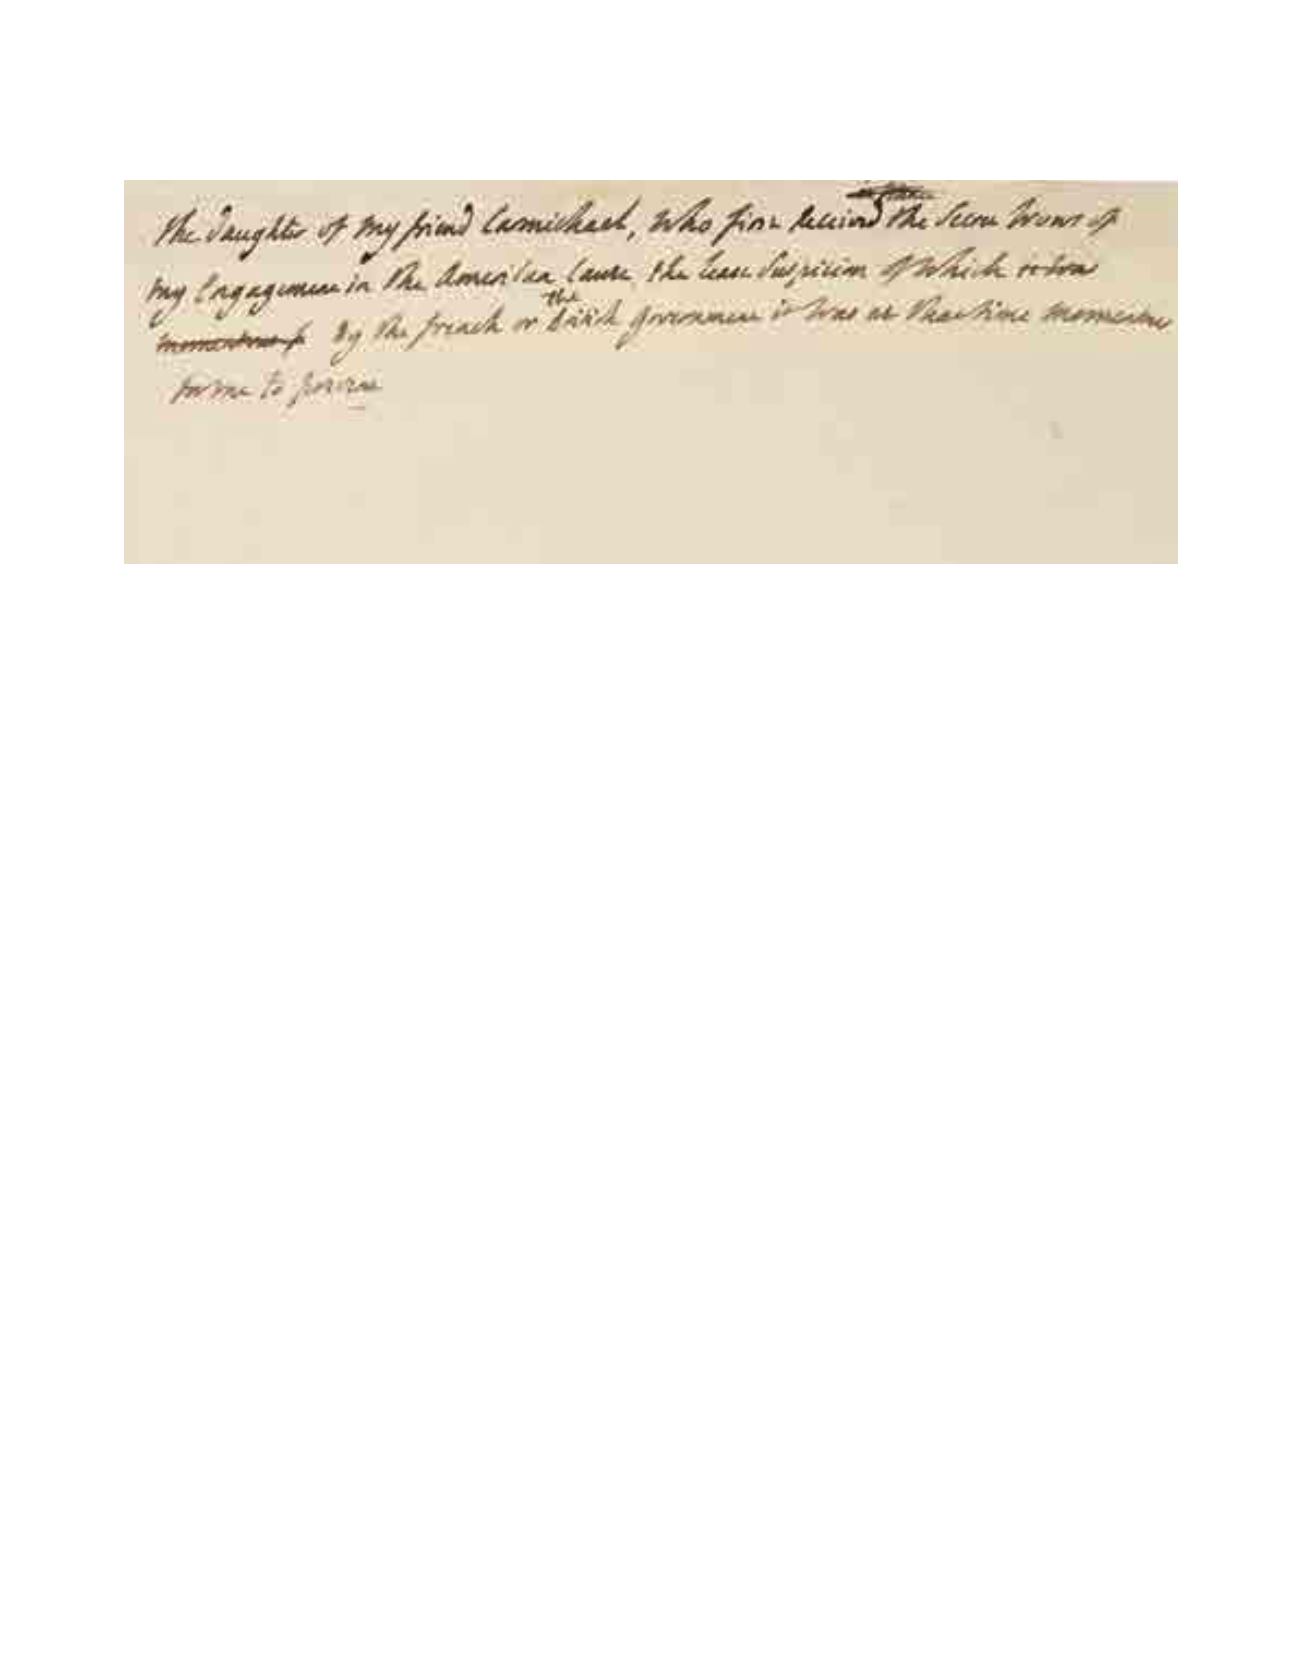 the daughter of my friend Carmichael, who first received the Secret vows of
my Engagement in the American Cause, the least Suspicion of Which
By the french or the british government it was at that time momentous
for me to prevent